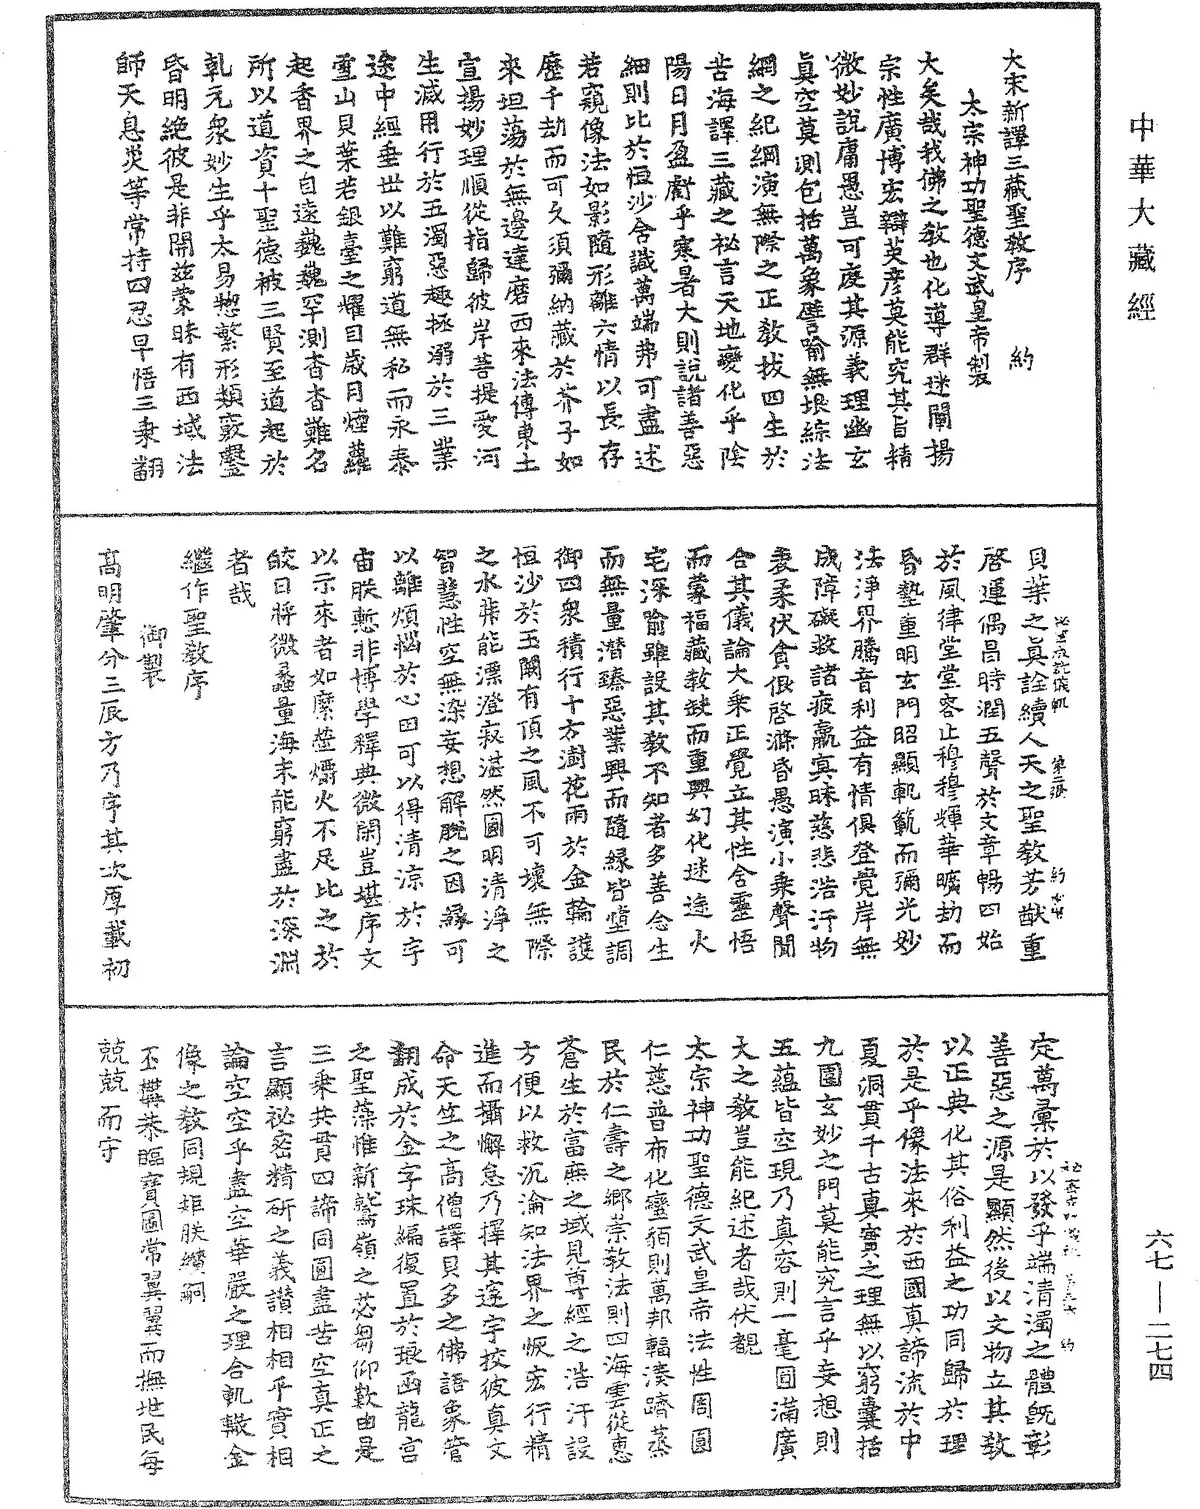 中華大藏經
大宋新譯三藏聖敎序　約
太宗神功聖德文武皇帝製
大矣哉我佛之敎也化導群迷闡揚
宗性廣博宏辯英彦莫能究其旨精
微妙說庸愚豈可度其源義理幽玄
眞空莫測包括萬象譬喻無垠綜法
網之紀綱演無際之正敎拔四生於
苦海譯三藏之祕言天地變化乎陰
陽日月盈虧乎寒暑大則說諸善惡
細則比於恒沙含識萬端弗可盡述
若窺像法如影隨形離六情以長存
歷千劫而可久須彌納藏於芥子如
來坦蕩於無邊達磨西來法傳東土
宣揚妙理順從指歸彼岸菩提愛河
生滅用行於五濁惡趣拯溺於三業
途中經垂世以難窮道無私而永泰
雪山貝葉若銀臺之耀目歲月煙蘿
起香界之自遠巍巍罕測杳杳難名
所以道資十聖德被三賢至道起於
乹元衆妙生乎太易惣繁形類竅鑿
昏明絶彼是非開兹蒙昧有西域法
師天息災等常持四忍早悟三乘翻
貝葉之眞詮續人天之聖敎芳猷重
啓運偶昌時潤五聲於文章暢四始
於風律堂堂容止穆穆輝華曠劫而
昏墊重明玄門昭顯軌範而彌光妙
法淨界騰音利益有情俱登覺岸無
成障礙救諸疲羸冥昧慈悲浩汗物
表柔伏貪佷啓滌昏愚演小乘聲聞
合其儀論大乘正覺立其性含靈悟
而蒙福藏敎缺而重興幻化迷途火
宅深喻雖設其敎不知者多善念生
而無量潜臻惡業興而隨緣皆墮調
御四衆積行十方澍花雨於金輪護
恒沙於玉闕有頂之風不可壞無際
之水弗能漂澄寂湛然圓明清淨之
智慧性空無染妄想解脫之因緣可
以離煩惱於心田可以得清涼於宇
宙朕慙非博學釋典微閑豈堪序文
以示來者如縻螢爝火不足比之於
皎日將微蠡量海未能窮盡於深淵
者哉
繼作聖敎序
御製
高明肇分三辰方乃序其次厚載初
定萬彙於以發乎端清濁之體旣彰
善惡之源是顯然後以文物立其敎
以正典化其俗利益之功同歸於理
於是乎像法來於西國真諦流於中
夏洞貫千古真實之理無以窮囊括
九圍玄妙之門莫能究言乎妄想則
五蘊皆空現乃真容則一毫圓滿廣
大之敎豈能紀述者哉伏覩
太宗神功聖德文武皇帝法性周圓
仁慈普布化蠻貊則萬邦輻湊躋蒸
民於仁壽之鄉崇敎法則四海雲從惠
蒼生於富庶之域見尊經之浩汗設
方便以救沉淪知法界之恢宏行精
進而攝懈怠乃擇其邃宇挍彼真文
命天竺之高僧譯貝多之佛語象管
翻成於金字珠編復置於琅函龍宮
之聖藻惟新鷲嶺之苾芻仰歎由是
三乘共貫四諦同圓盡苦空真正之
言顯祕密精研之義讃相相乎實相
論空空乎盡空華嚴之理合軌轍金
像之敎同規矩朕纘嗣
丕搆恭臨寶圖常翼翼而撫世民每
兢兢而守
六七—二七四